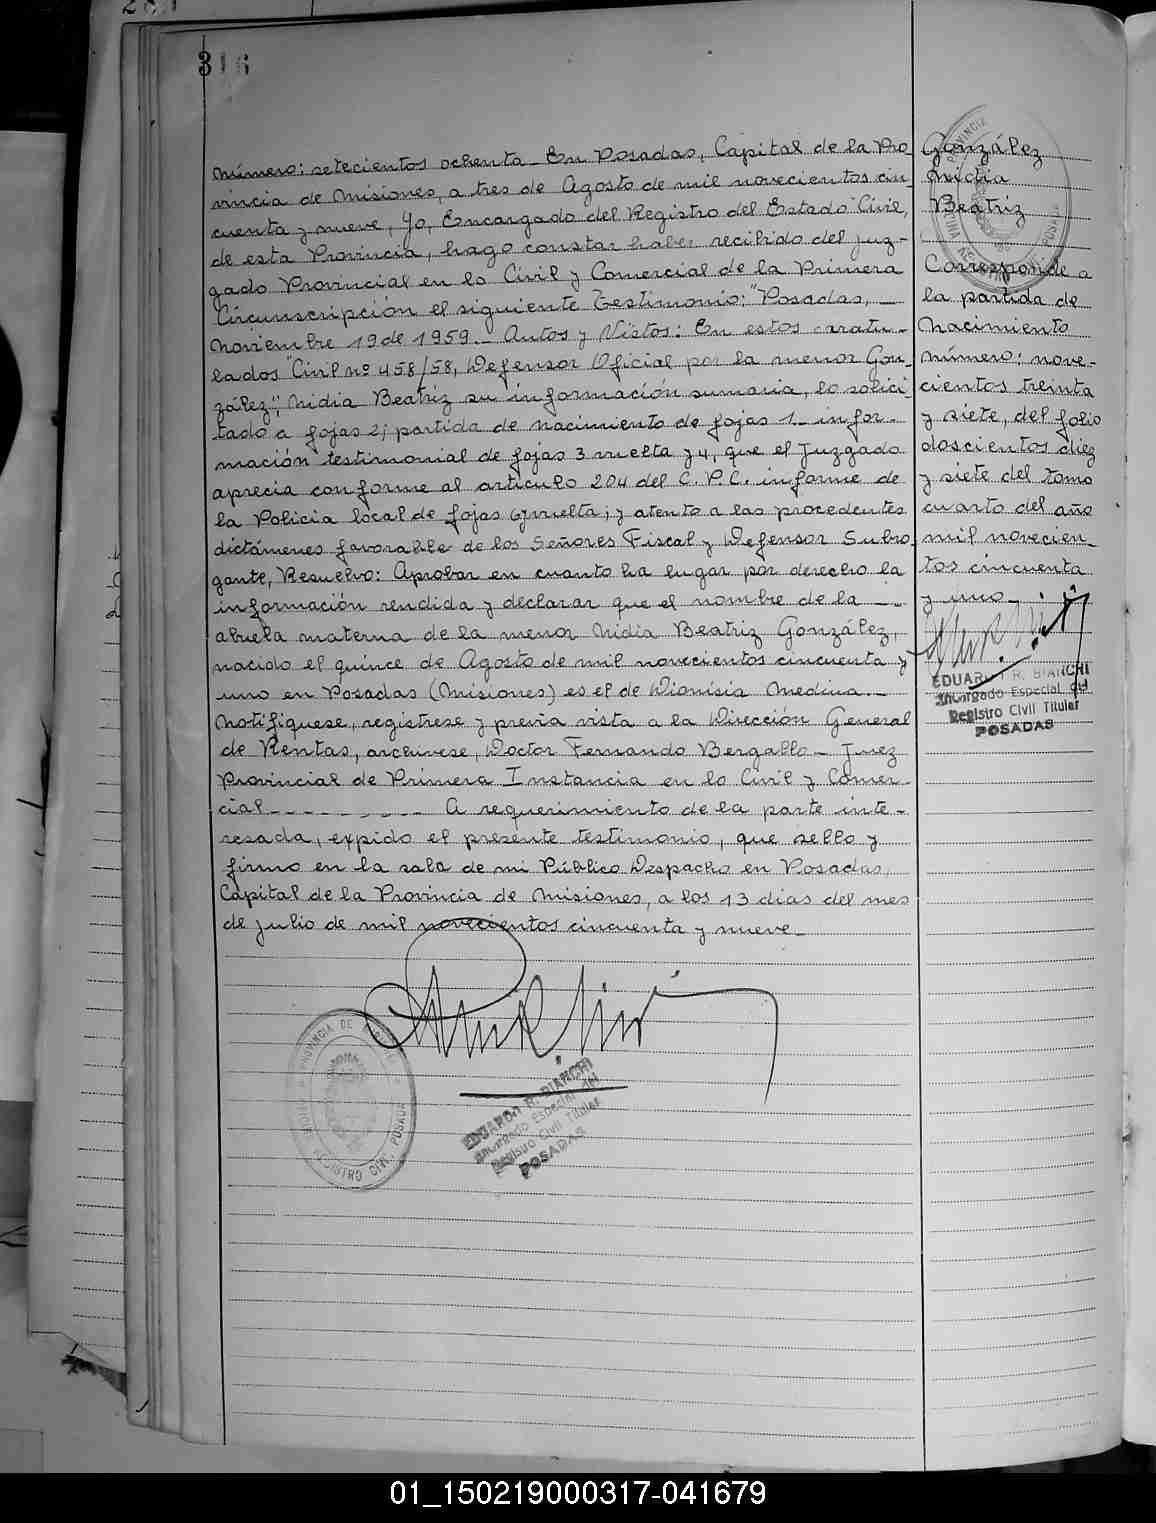 316
Número: setecientos ochenta_ En Posadas, Capital de la Pro_
vincia de Misiones, a tres de Agosto de mil novecientos cin_
cuenta y nueve, Yo, Encargado del Registro del Estado Civil,
de esta Provincia, hago constar haber recibido del Juz-
gado Provincial en lo Civil y Comercial de la Primera
Circunscripción el siguiente Testimonio: "Posadas, _
Noviembre 19 de 1959_ Autos y Vistos: En estos caratu_
lados "Civil nº 458/58, Defensor Oficial por la menor Gon_
zález", Nidia Beatriz su información sumaria, lo solici
tado a fojas 2; partida de nacimiento de fojas 1_ infor_
mación testimonial de fojas 3 vuelta y 4, que el Juzgado
aprecia conforme al artículo 204 del C. P.C. informe de
la Policia local de fojas 6 y vuelta; y atento a las procedentes
dictámenes favorable de los Señores Fiscal y Defensor Subro_
gante, Resuelvo: Aprobar en cuanto ha lugar por derecho la
información rendida y declarar que el nombre de la _ _
abuela materna de la menor Nidia Beatriz González,
nacido el quince de Agosto de mil novecientos cincuenta y
uno en Posadas (Misiones) es el de Dionisia Medina_
Notifíquese, registrese y previa vista a la Dirección General
de Rentas, archívese, Doctor Fernando Bergallo_ Juez
Provincial de Primera Instancia en lo Civil y Comer_
cial_ _ _ _ _ _ _ A requerimiento de la parte inte_
resada, expido el presente testimonio, que sello y
firmo en la sala de mi Público Despacho en Posadas,
Capital de la Provincia de Misiones, a los 13 dias del mes
de julio de mil novecientos cincuenta y nueve_
EDUARDO R. BIANCHI
Encargado Especial del
Registro Civil Titular
POSADAS
PROVINCIA DE
REGISTRO CIVIL POSADAS
González
Nidia
Beatriz
Corresponde a
la partida de
Nacimiento
número: nove-
cientos treinta
y siete, del folio
doscientos diez
y siete del tomo
cuarto del año
mil novecien_
tos cincuenta
y uno_
EDUARDO R. BIANCHI
Encargado Especial del
Registro Civil Titular
POSADAS
PROVINCIA
POSADAS
01_150219000317-041679